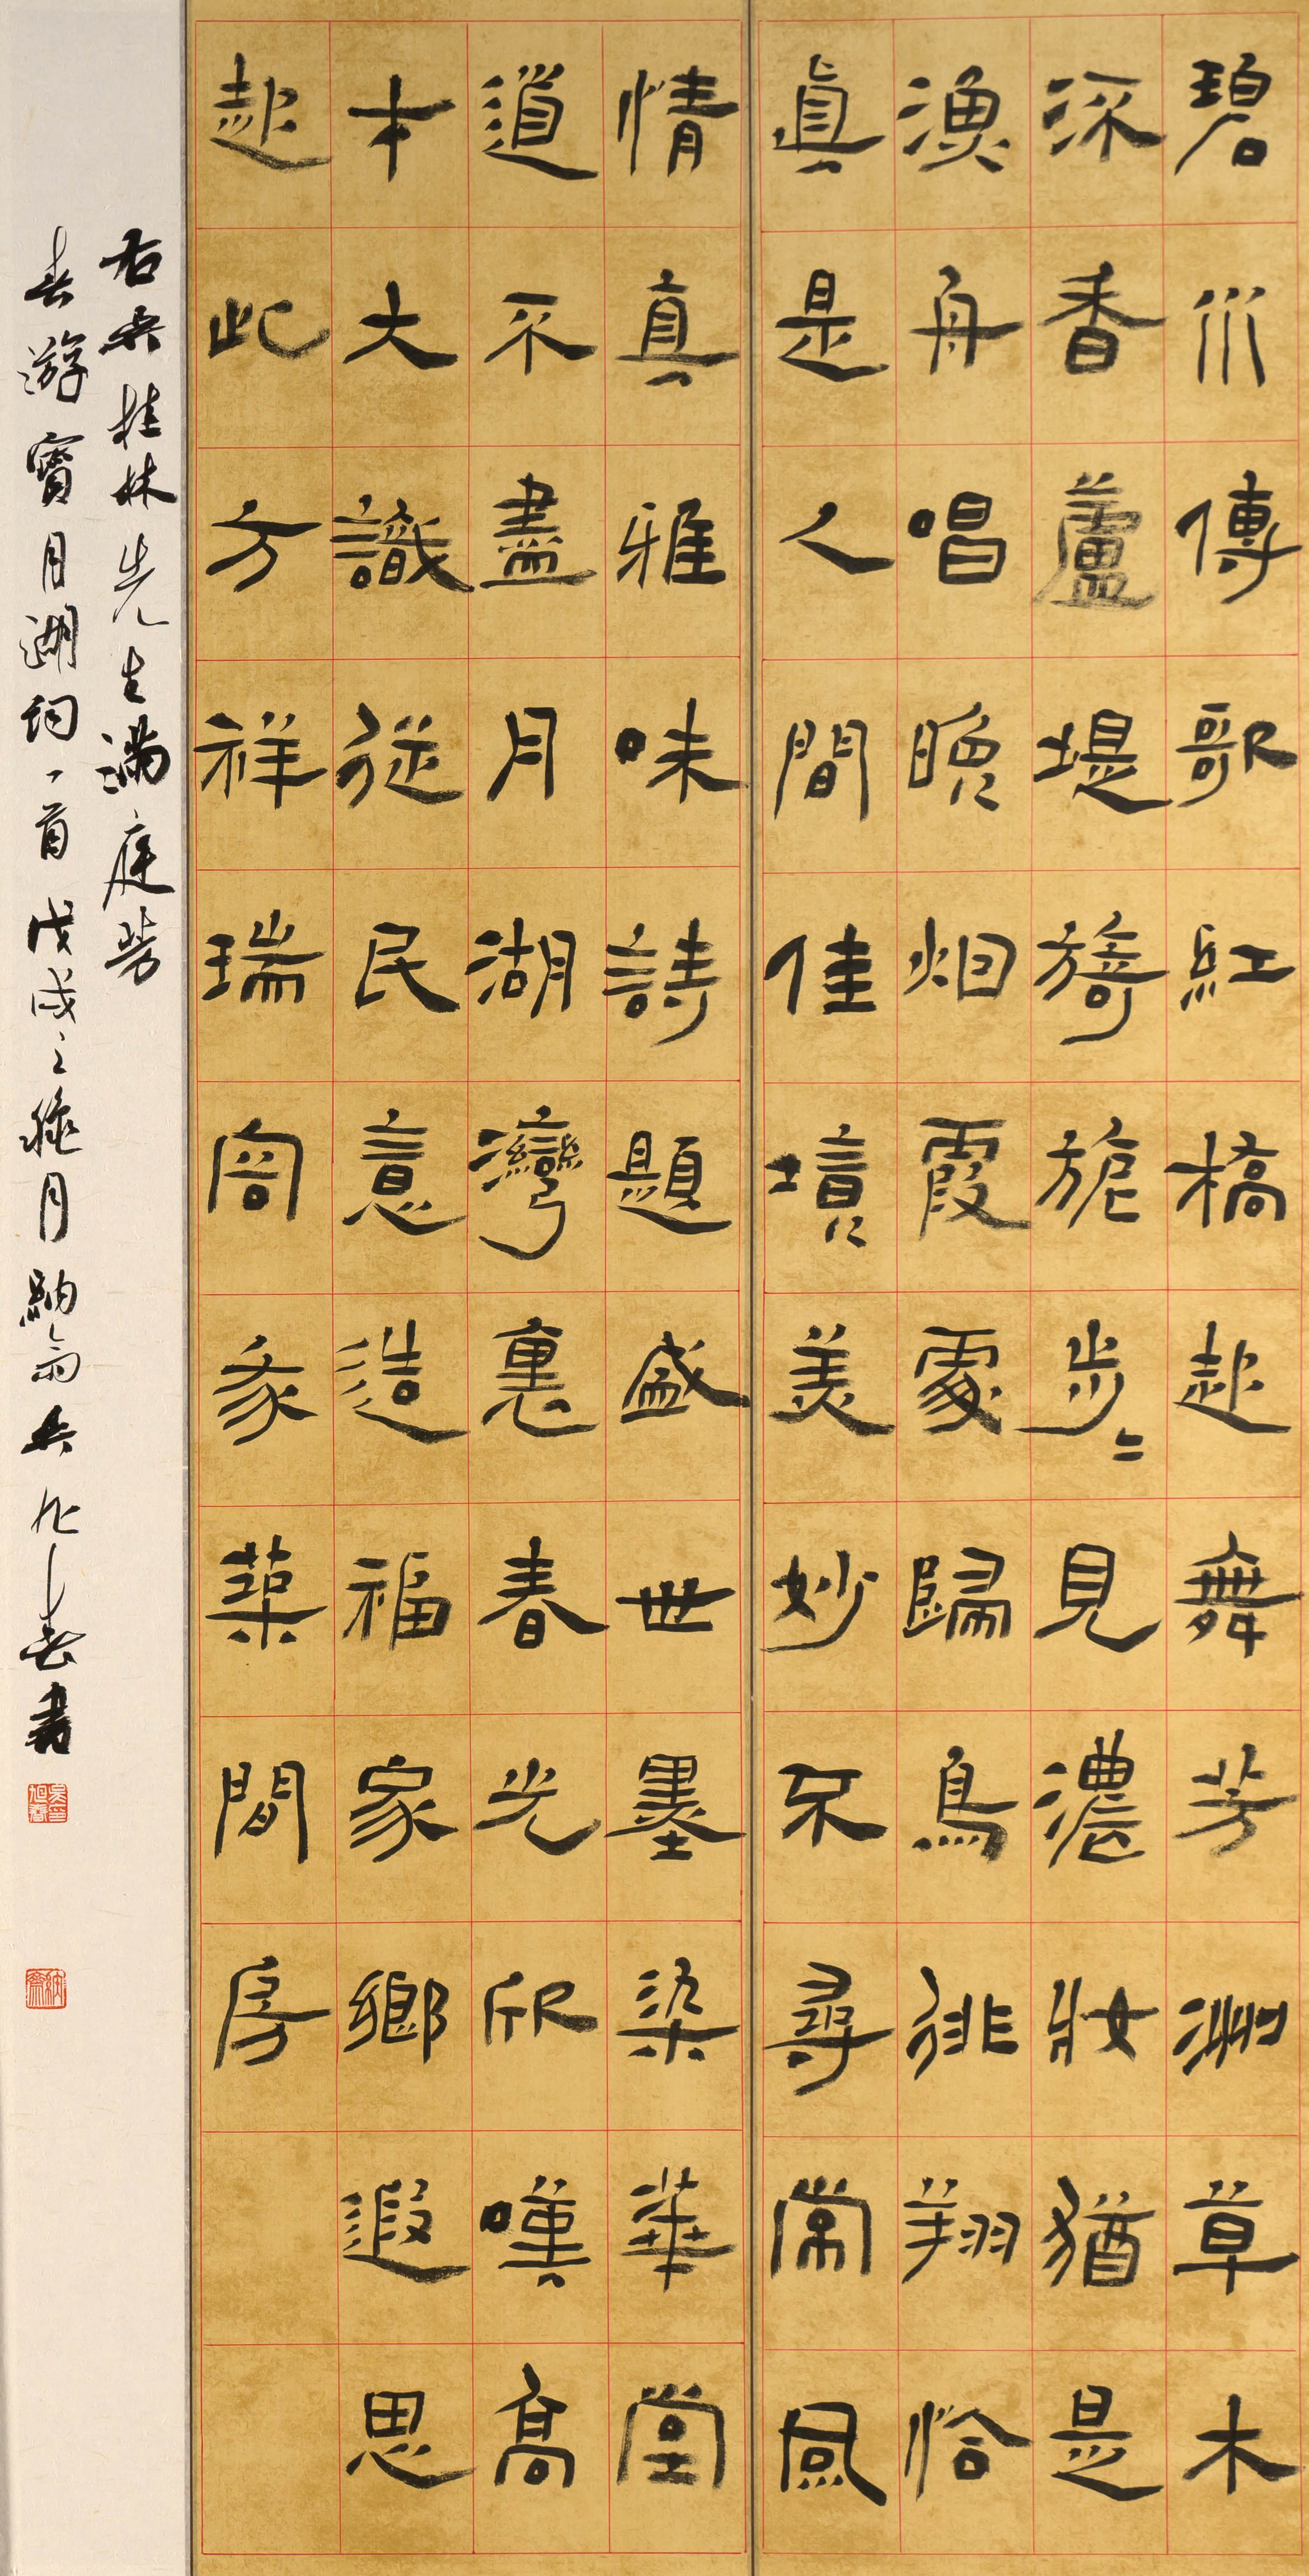 碧川傳歌紅橋起舞芳洲草木
深香蘆堤旖旎步〻見濃妝猶是
漁舟唱晚烟霞處歸鳥徘翔恰
真是人間佳境美妙不尋常風
情真雅味詩題盛世墨染華堂
道不盡月湖灣裏春光欣嘆高
本大識從民意造福家鄉遐思
起此方祥瑞閤家築間房
右吳桂林先生滿庭芳
春游寶月湖詞一首戊戌之穐月納齋吳旭春書